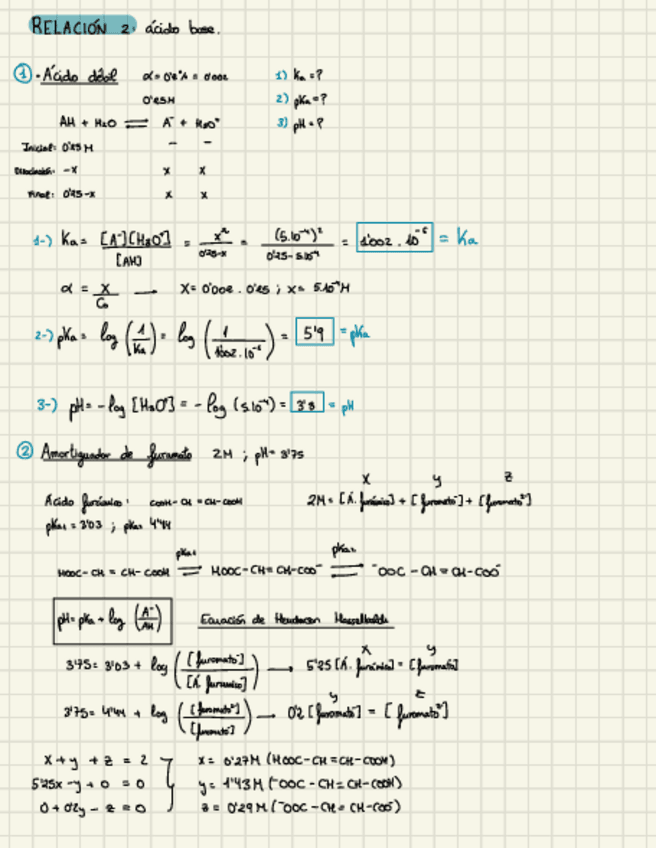 RELACIÓN 2: ácido base.
① · Ácido débil α = 0'2% = 0'002 1) Ka = ?
0'25M 2) pKa = ?
AH + H₂O ⇌ A⁻ + H₃O⁺ 3) pH = ?
Inicial: 0'25 M − −
Disociación: -x x x
Final: 0'25-x x x
1-) Ka = [A⁻][H₃O⁺] / [AH] = x² / 0'25-x = (5.10⁻⁴)² / 0'25-5.10⁻⁴ = 1'002 . 10⁻⁶ = Ka
α = x / C₀ → x = 0'002 . 0'25 ; x = 5.10⁻⁴M
2-) pKa = log (1 / Ka) = log (1 / 1'002.10⁻⁶) = 5'9 = pKa
3-) pH = - log [H₃O⁺] = - log (5.10⁻⁴) = 3'3 = pH
② Amortiguador de fumarato 2M ; pH = 3'75
x y z
Ácido fumárico: COOH-CH=CH-COOH 2M = [Á. fumárico] + [fumarato⁻] + [fumarato²⁻]
pKa₁ = 3'03 ; pKa₂ 4'44
pKa₁ pKa₂
HOOC-CH=CH-COOH ⇌ HOOC-CH=CH-COO⁻ ⇌ ⁻OOC-CH=CH-COO⁻
pH = pKa + log (A⁻ / AH) Ecuación de Henderson Hasselbalch
x y
3'75 = 3'03 + log ([fumarato⁻] / [Á. fumárico]) → 5'25 [Á. fumárico] = [fumarato⁻]
y z
3'75 = 4'44 + log ([fumarato²⁻] / [fumarato⁻]) → 0'2 [fumarato⁻] = [fumarato²⁻]
x + y + z = 2 x = 0'27M (HOOC-CH=CH-COOH)
5'25x - y + 0 = 0 y = 1'43M (⁻OOC-CH=CH-COOH)
0 + 0'2y - z = 0 z = 0'29M (⁻OOC-CH=CH-COO⁻)